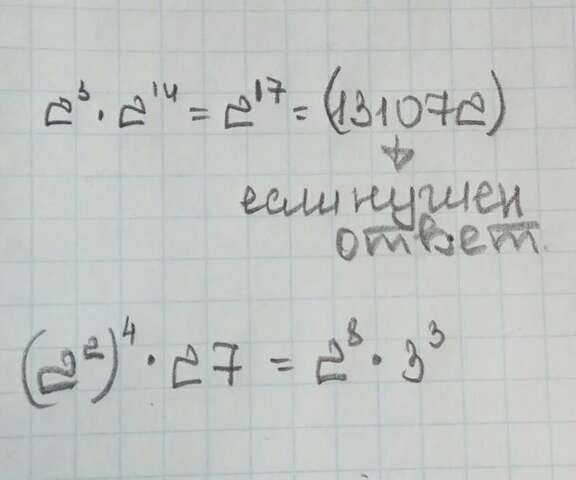 2³ · 2¹⁴ = 2¹⁷ = (131072)
если нужен
ответ.
(2²)⁴ · 27 = 2⁸ · 3³